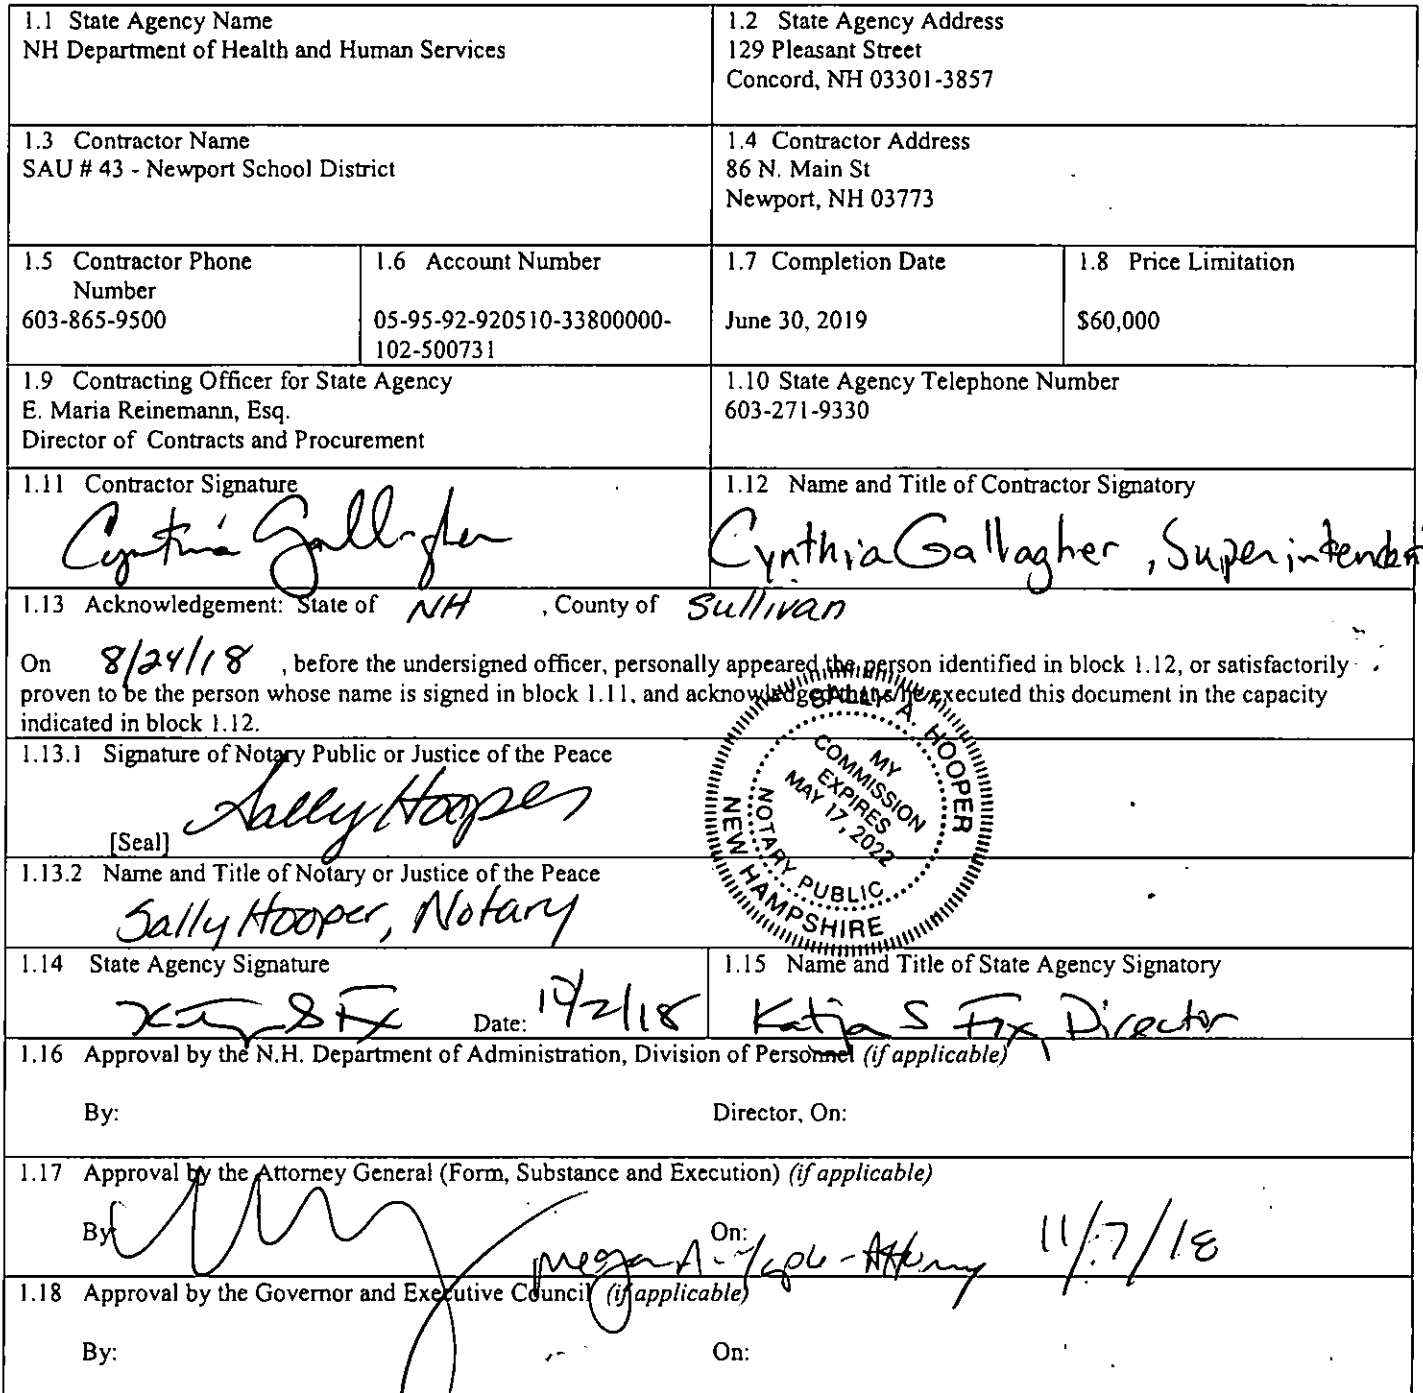 1.1 State Agency Name
NH Department of Health and Human Services
1.2 State Agency Address
129 Pleasant Street
Concord, NH 03301-3857
1.3 Contractor Name
SAU # 43 - Newport School District
1.4 Contractor Address
86 N. Main St
Newport, NH 03773
1.5 Contractor Phone
Number
603-865-9500
1.6 Account Number
05-95-92-920510-33800000-
102-500731
1.7 Completion Date
June 30, 2019
1.8 Price Limitation
$60,000
1.9 Contracting Officer for State Agency
E. Maria Reinemann, Esq.
Director of Contracts and Procurement
1.10 State Agency Telephone Number
603-271-9330
1.11 Contractor Signature
Cynthia Gallagher
1.12 Name and Title of Contractor Signatory
Cynthia Gallagher, Superintendent
1.13 Acknowledgement: State of NH , County of Sullivan
On 8/24/18 , before the undersigned officer, personally appeared the person identified in block 1.12, or satisfactorily
proven to be the person whose name is signed in block 1.11, and acknowledged that s/he executed this document in the capacity
indicated in block 1.12.
1.13.1 Signature of Notary Public or Justice of the Peace
Sally Hooper
[Seal]
SALLY A. HOOPER
NOTARY PUBLIC
NEW HAMPSHIRE
MY
COMMISSION
EXPIRES
MAY 17, 2022
1.13.2 Name and Title of Notary or Justice of the Peace
Sally Hooper, Notary
1.14 State Agency Signature
Date: 10/2/18
1.15 Name and Title of State Agency Signatory
Katja S Fox, Director
1.16 Approval by the N.H. Department of Administration, Division of Personnel (if applicable)
By:
Director, On:
1.17 Approval by the Attorney General (Form, Substance and Execution) (if applicable)
By:
On:
Megan A. - Attorney 11/7/18
1.18 Approval by the Governor and Executive Council (if applicable)
By:
On: